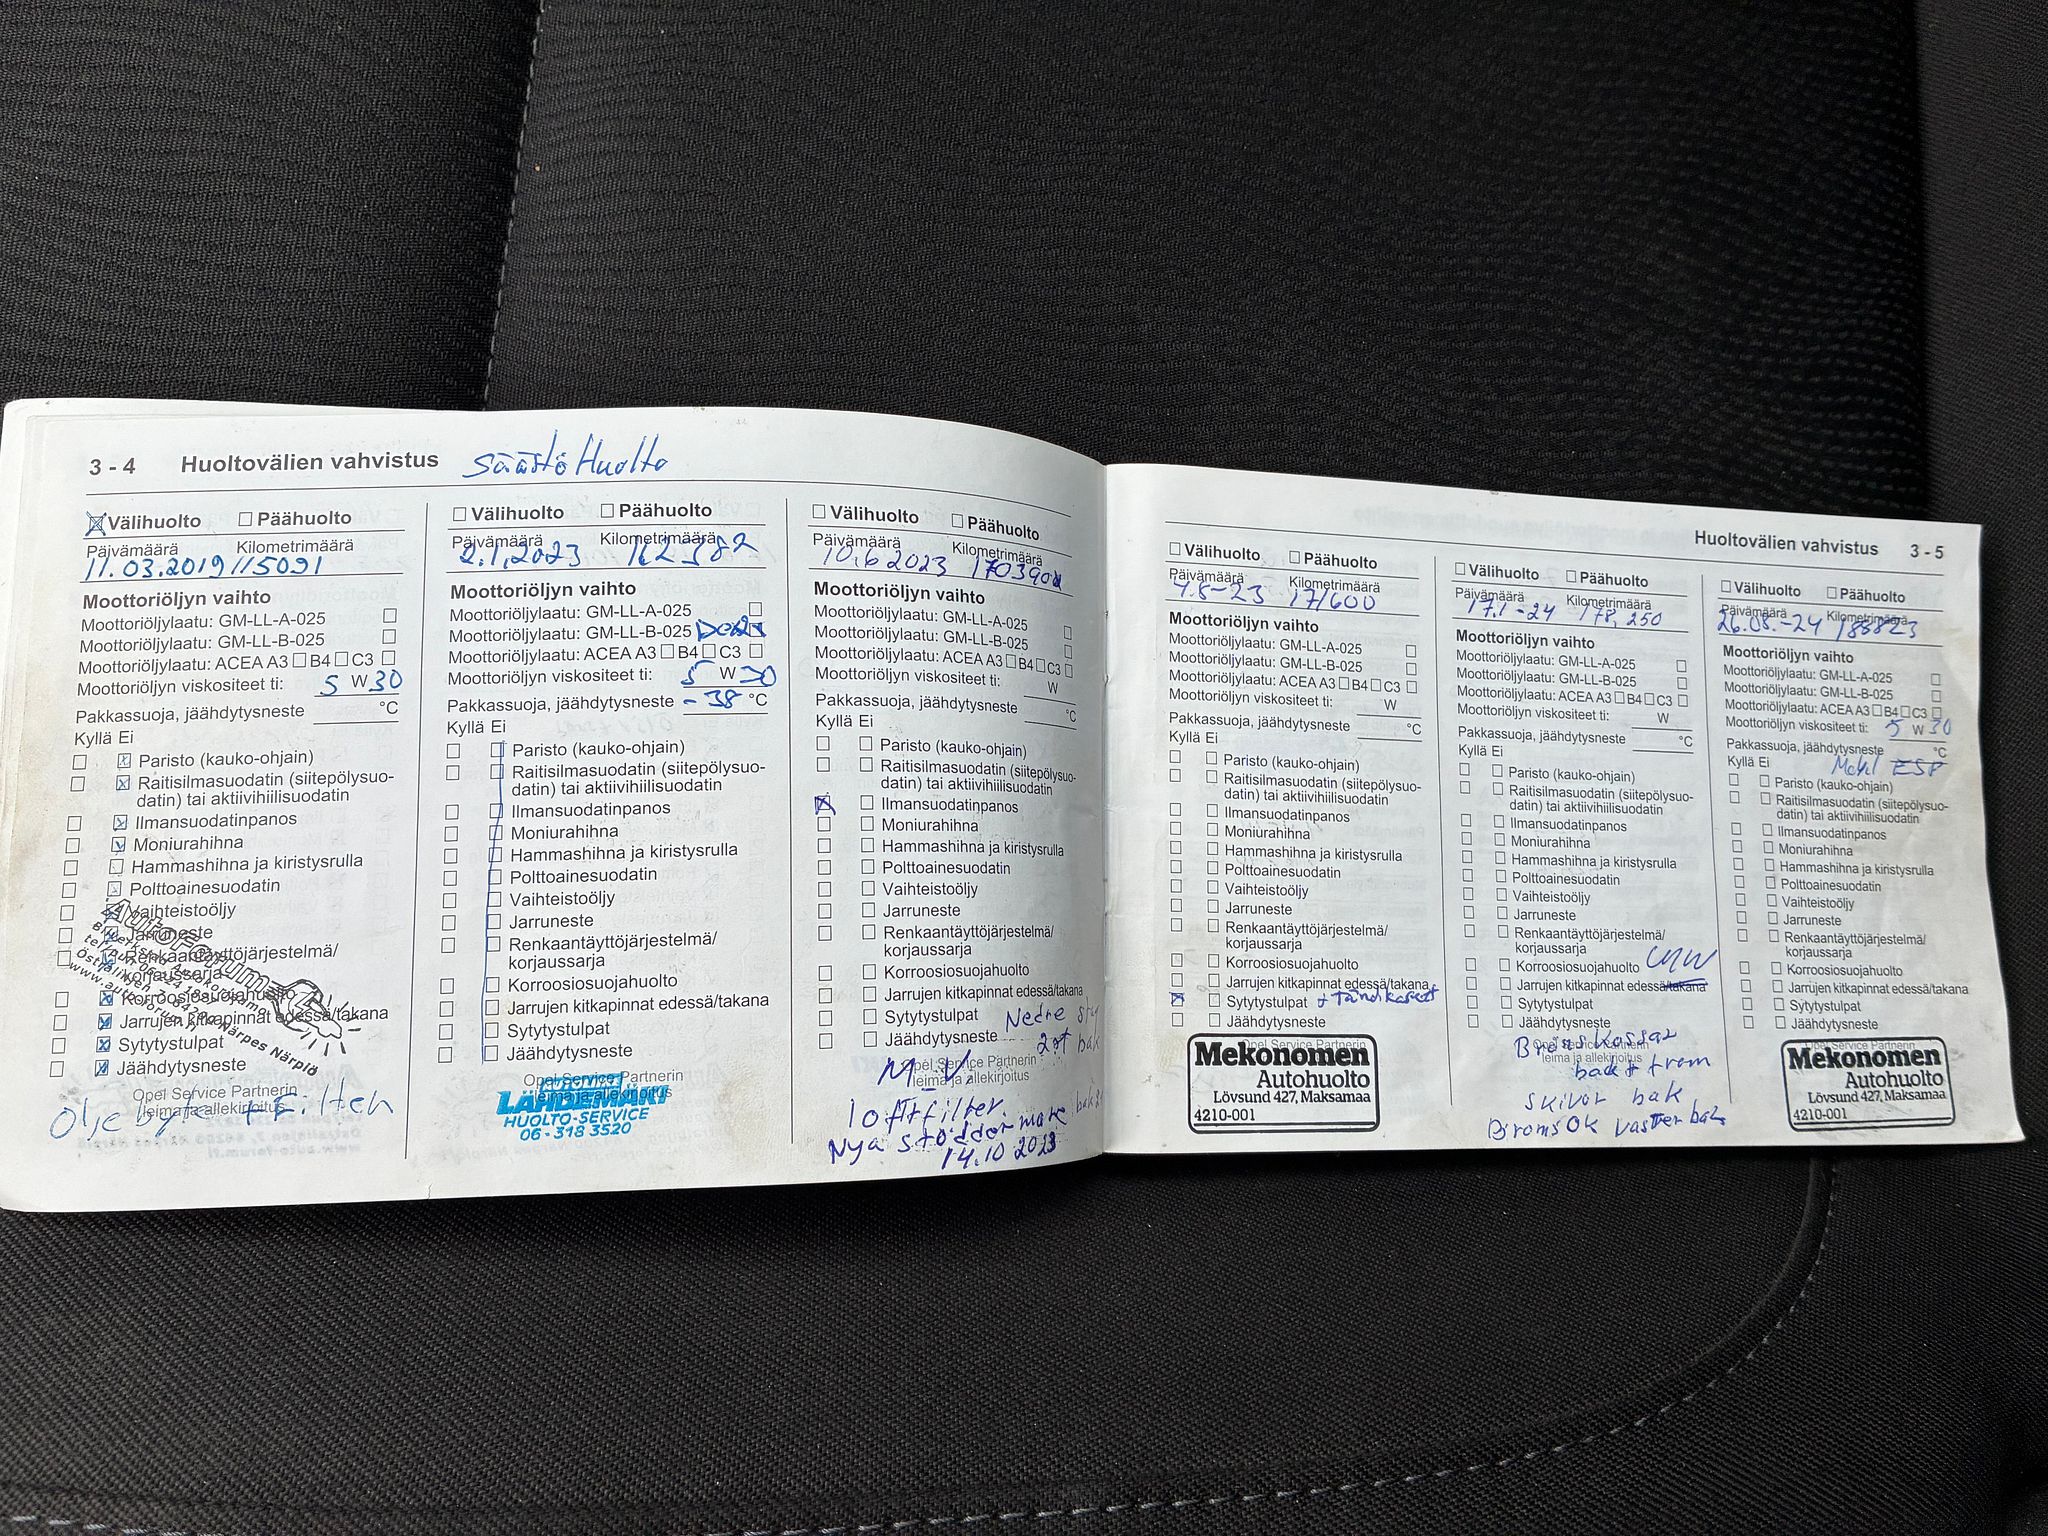 3 - 4 Huoltovälien vahvistus Säästö Huolto
Välihuolto Päähuolto
Päivämäärä Kilometrimäärä
11.03.2019 115091
Moottoriöljyn vaihto
Moottoriöljylaatu: GM-LL-A-025
Moottoriöljylaatu: GM-LL-B-025
Moottoriöljylaatu: ACEA A3 B4 C3
Moottoriöljyn viskositeet ti: 5 W 30
Pakkassuoja, jäähdytysneste °C
Kyllä Ei
Paristo (kauko-ohjain)
Raitisilmasuodatin (siitepölysuo-
datin) tai aktiivihiilisuodatin
Ilmansuodatinpanos
Moniurahihna
Hammashihna ja kiristysrulla
Polttoainesuodatin
Vaihteistoöljy
Jarruneste
Renkaantäyttöjärjestelmä/
korjaussarja
Korroosiosuojahuolto
Jarrujen kitkapinnat edessä/takana
Sytytystulpat
Jäähdytysneste
Opel Service Partnerin
leima ja allekirjoitus
AutoForum
Närpes Närpiö
Olje byte + Filter
Välihuolto Päähuolto
Päivämäärä Kilometrimäärä
2.1.2023 162582
Moottoriöljyn vaihto
Moottoriöljylaatu: GM-LL-A-025
Moottoriöljylaatu: GM-LL-B-025
Moottoriöljylaatu: ACEA A3 B4 C3
Moottoriöljyn viskositeet ti: 5 W 30
Pakkassuoja, jäähdytysneste - 38 °C
Kyllä Ei
Paristo (kauko-ohjain)
Raitisilmasuodatin (siitepölysuo-
datin) tai aktiivihiilisuodatin
Ilmansuodatinpanos
Moniurahihna
Hammashihna ja kiristysrulla
Polttoainesuodatin
Vaihteistoöljy
Jarruneste
Renkaantäyttöjärjestelmä/
korjaussarja
Korroosiosuojahuolto
Jarrujen kitkapinnat edessä/takana
Sytytystulpat
Jäähdytysneste
Opel Service Partnerin
leima ja allekirjoitus
LÄHDEMÄKI
HUOLTO-SERVICE
06-318 3520
Välihuolto Päähuolto
Päivämäärä Kilometrimäärä
10.6 2023 170390
Moottoriöljyn vaihto
Moottoriöljylaatu: GM-LL-A-025
Moottoriöljylaatu: GM-LL-B-025
Moottoriöljylaatu: ACEA A3 B4 C3
Moottoriöljyn viskositeet ti: W
Pakkassuoja, jäähdytysneste °C
Kyllä Ei
Paristo (kauko-ohjain)
Raitisilmasuodatin (siitepölysuo-
datin) tai aktiivihiilisuodatin
Ilmansuodatinpanos
Moniurahihna
Hammashihna ja kiristysrulla
Polttoainesuodatin
Vaihteistoöljy
Jarruneste
Renkaantäyttöjärjestelmä/
korjaussarja
Korroosiosuojahuolto
Jarrujen kitkapinnat edessä/takana
Sytytystulpat Nedre
Jäähdytysneste 2st bak
Opel Service Partnerin
leima ja allekirjoitus
M-V
loftfilter.
Nya stöddermare
14.10 2023
Huoltovälien vahvistus 3 - 5
Välihuolto Päähuolto
Päivämäärä Kilometrimäärä
4.8-23 171600
Moottoriöljyn vaihto
Moottoriöljylaatu: GM-LL-A-025
Moottoriöljylaatu: GM-LL-B-025
Moottoriöljylaatu: ACEA A3 B4 C3
Moottoriöljyn viskositeet ti: W
Pakkassuoja, jäähdytysneste °C
Kyllä Ei
Paristo (kauko-ohjain)
Raitisilmasuodatin (siitepölysuo-
datin) tai aktiivihiilisuodatin
Ilmansuodatinpanos
Moniurahihna
Hammashihna ja kiristysrulla
Polttoainesuodatin
Vaihteistoöljy
Jarruneste
Renkaantäyttöjärjestelmä/
korjaussarja
Korroosiosuojahuolto
Jarrujen kitkapinnat edessä/takana
Sytytystulpat + Tändkasett
Jäähdytysneste
Opel Service Partnerin
Mekonomen
Autohuolto
Lövsund 427, Maksamaa
4210-001
Välihuolto Päähuolto
Päivämäärä Kilometrimäärä
17.1-24 178,250
Moottoriöljyn vaihto
Moottoriöljylaatu: GM-LL-A-025
Moottoriöljylaatu: GM-LL-B-025
Moottoriöljylaatu: ACEA A3 B4 C3
Moottoriöljyn viskositeet ti: W
Pakkassuoja, jäähdytysneste °C
Kyllä Ei
Paristo (kauko-ohjain)
Raitisilmasuodatin (siitepölysuo-
datin) tai aktiivihiilisuodatin
Ilmansuodatinpanos
Moniurahihna
Hammashihna ja kiristysrulla
Polttoainesuodatin
Vaihteistoöljy
Jarruneste
Renkaantäyttöjärjestelmä/
korjaussarja
Korroosiosuojahuolto
Jarrujen kitkapinnat edessä/takana
Sytytystulpat
Jäähdytysneste
Opel Service Partnerin
leima ja allekirjoitus
Broms Kossar
bak + from
skivor bak
Broms OK vaster bak
Välihuolto Päähuolto
Päivämäärä Kilometrimäärä
26.08.-24 185823
Moottoriöljyn vaihto
Moottoriöljylaatu: GM-LL-A-025
Moottoriöljylaatu: GM-LL-B-025
Moottoriöljylaatu: ACEA A3 B4 C3
Moottoriöljyn viskositeet ti: 5 W 30
Pakkassuoja, jäähdytysneste °C
Kyllä Ei ESP
Paristo (kauko-ohjain)
Raitisilmasuodatin (siitepölysuo-
datin) tai aktiivihiilisuodatin
Ilmansuodatinpanos
Moniurahihna
Hammashihna ja kiristysrulla
Polttoainesuodatin
Vaihteistoöljy
Jarruneste
Renkaantäyttöjärjestelmä/
korjaussarja
Korroosiosuojahuolto
Jarrujen kitkapinnat edessä/takana
Sytytystulpat
Jäähdytysneste
Mekonomen
Autohuolto
Lövsund 427, Maksamaa
4210-001